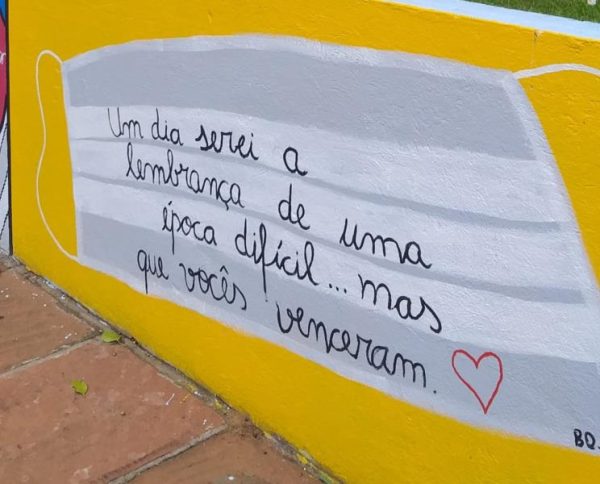 Um dia serei a
lembrança de uma
época difícil... mas
que vocês venceram.
BQ.